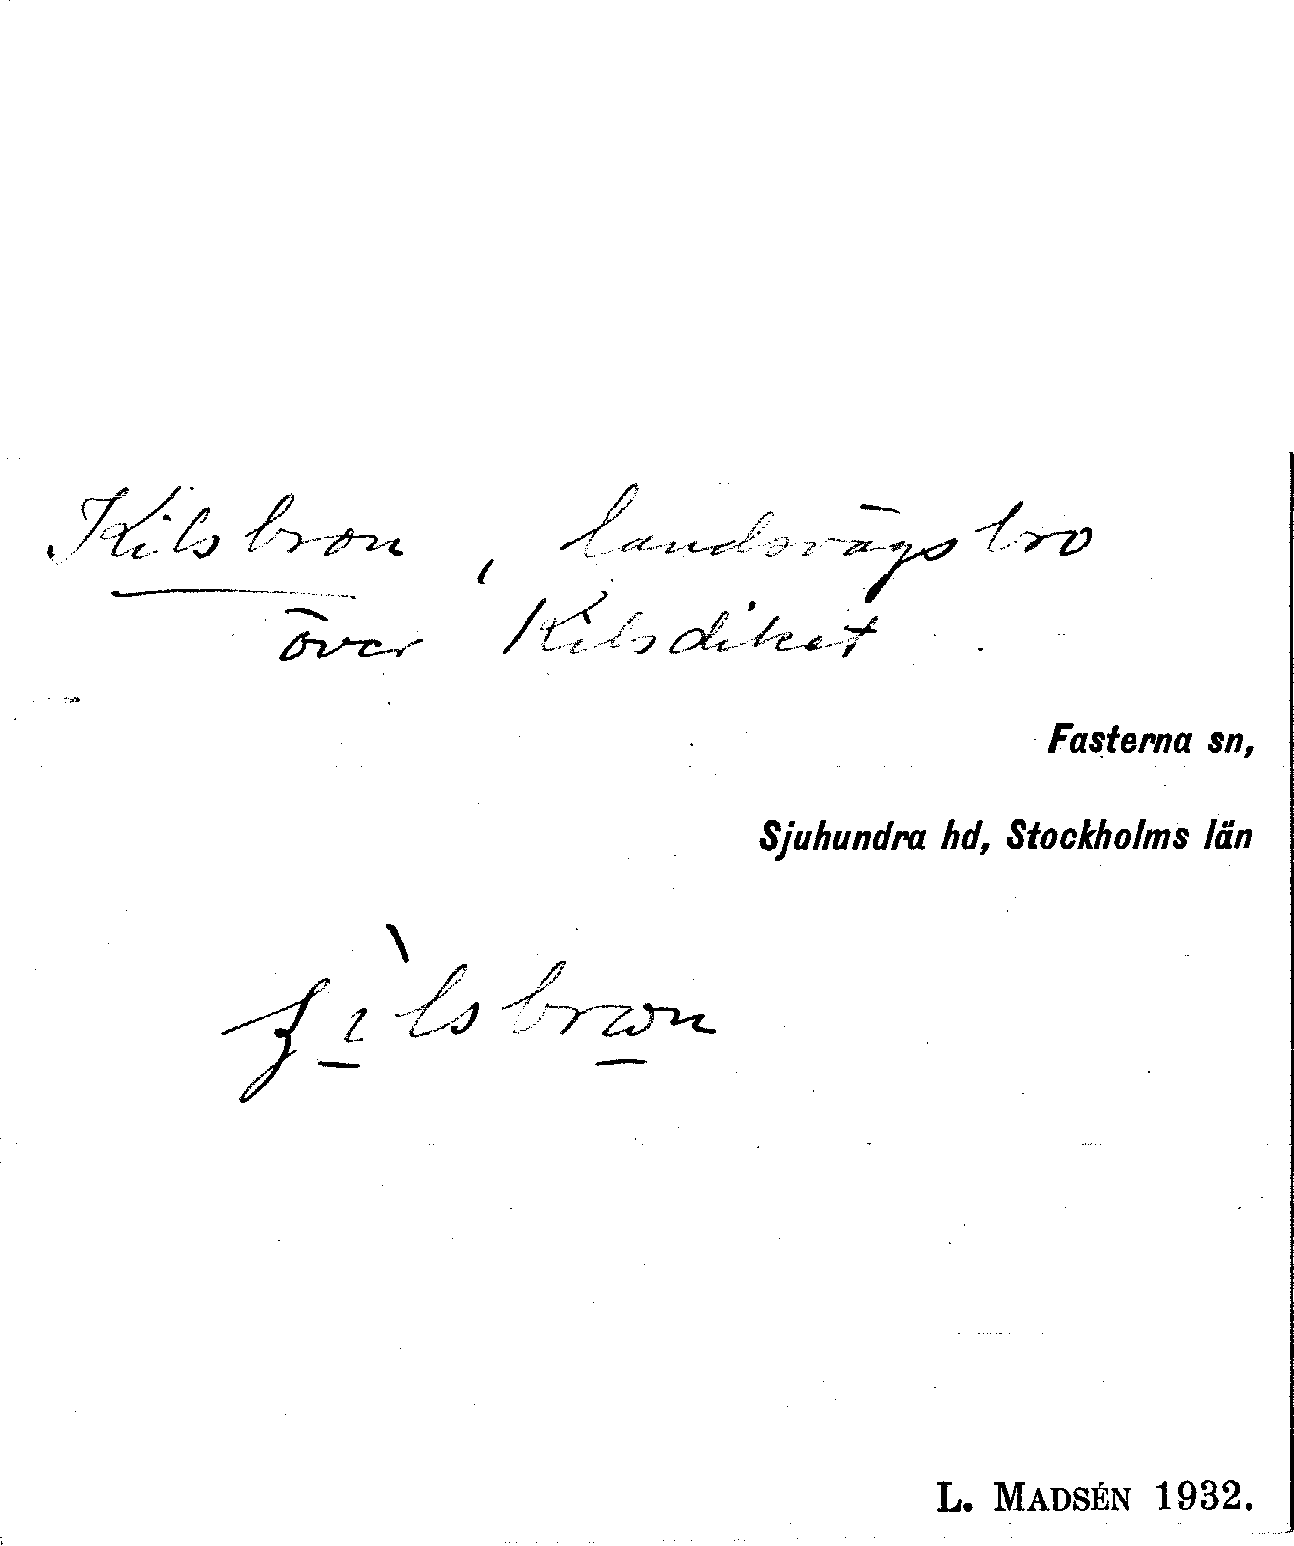 Kilsbron, landsvägsbro
över Kilsdiket.
Fasterna sn,
Sjuhundra hd, Stockholms län
L. MADSÉN 1932.